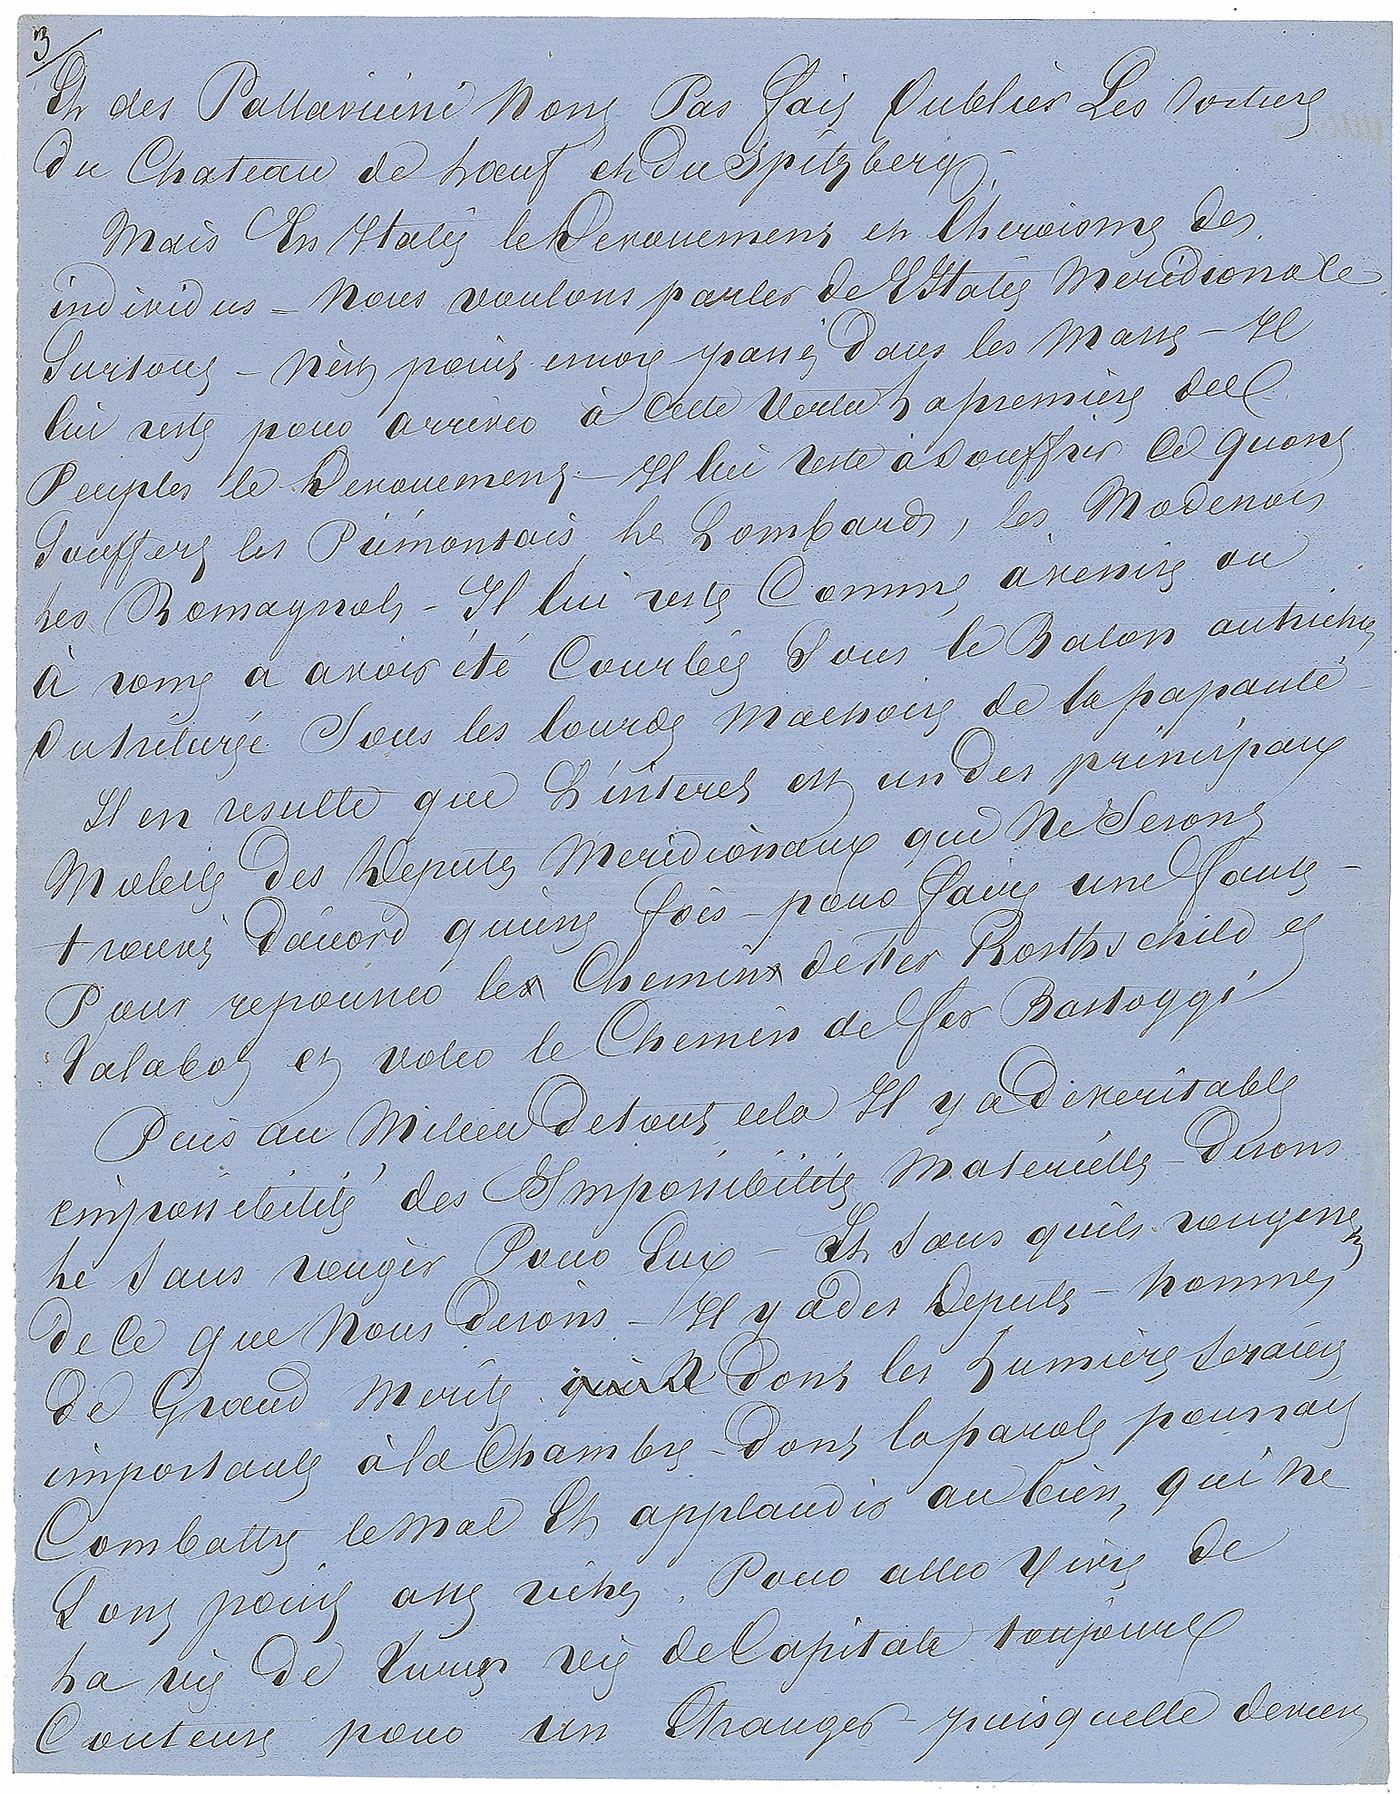 3/
Et des Pallavicini Nont Pas fait Oublier Les
du Chateau de et du Spitzberg.
Mais En Italie le Devouement et Lheroisme des
individus – Nous voulons parler de LItalie Meridionale
Surtout – Nest point encore passé dans les Mass – Il
lui reste pour arriver à Cette Vertu La premiere des
Peuples le Devouement – Il lui reste à Souffrir Ce quont
Souffert les Piémontais Les Lombards, les Modenois
Les Romagnols – Il lui reste Comme à venise ou
à rome a avoir été Courbée Sous le Baton autrichien
Ou triturée Sous les lourds machoire de la papauté –
Il en resulte que L'interet est un des principaux
Mobiles des Deputes Meridionaux qui Ne Seront
trouvé d'accord qu'une fois – pour faire une faute –
Pour repousser le Chemin de Fer Rosthschild et
Talabot et voter le Chemin de fer Bastoggi
Puis au Milieu de tout cela Il y a de veritable
impossibilité des Impossibilité Materielle – disons
le Sans rougir Pour Eux – Et Sans quils rougissent
de Ce que Nous disons – Il y a des Deputs – hommes
de Grand Merite dont les Lumière Seraient
importante à la Chambre – Dont la parole pourrait
Combattre le Mal Et applaudir au bien, qui Ne
Sont point assez riche. Pour aller Vivre de
La vie de Turin vie de Capitale toujours
Couteuse pour un Etranger – puisquelle devient